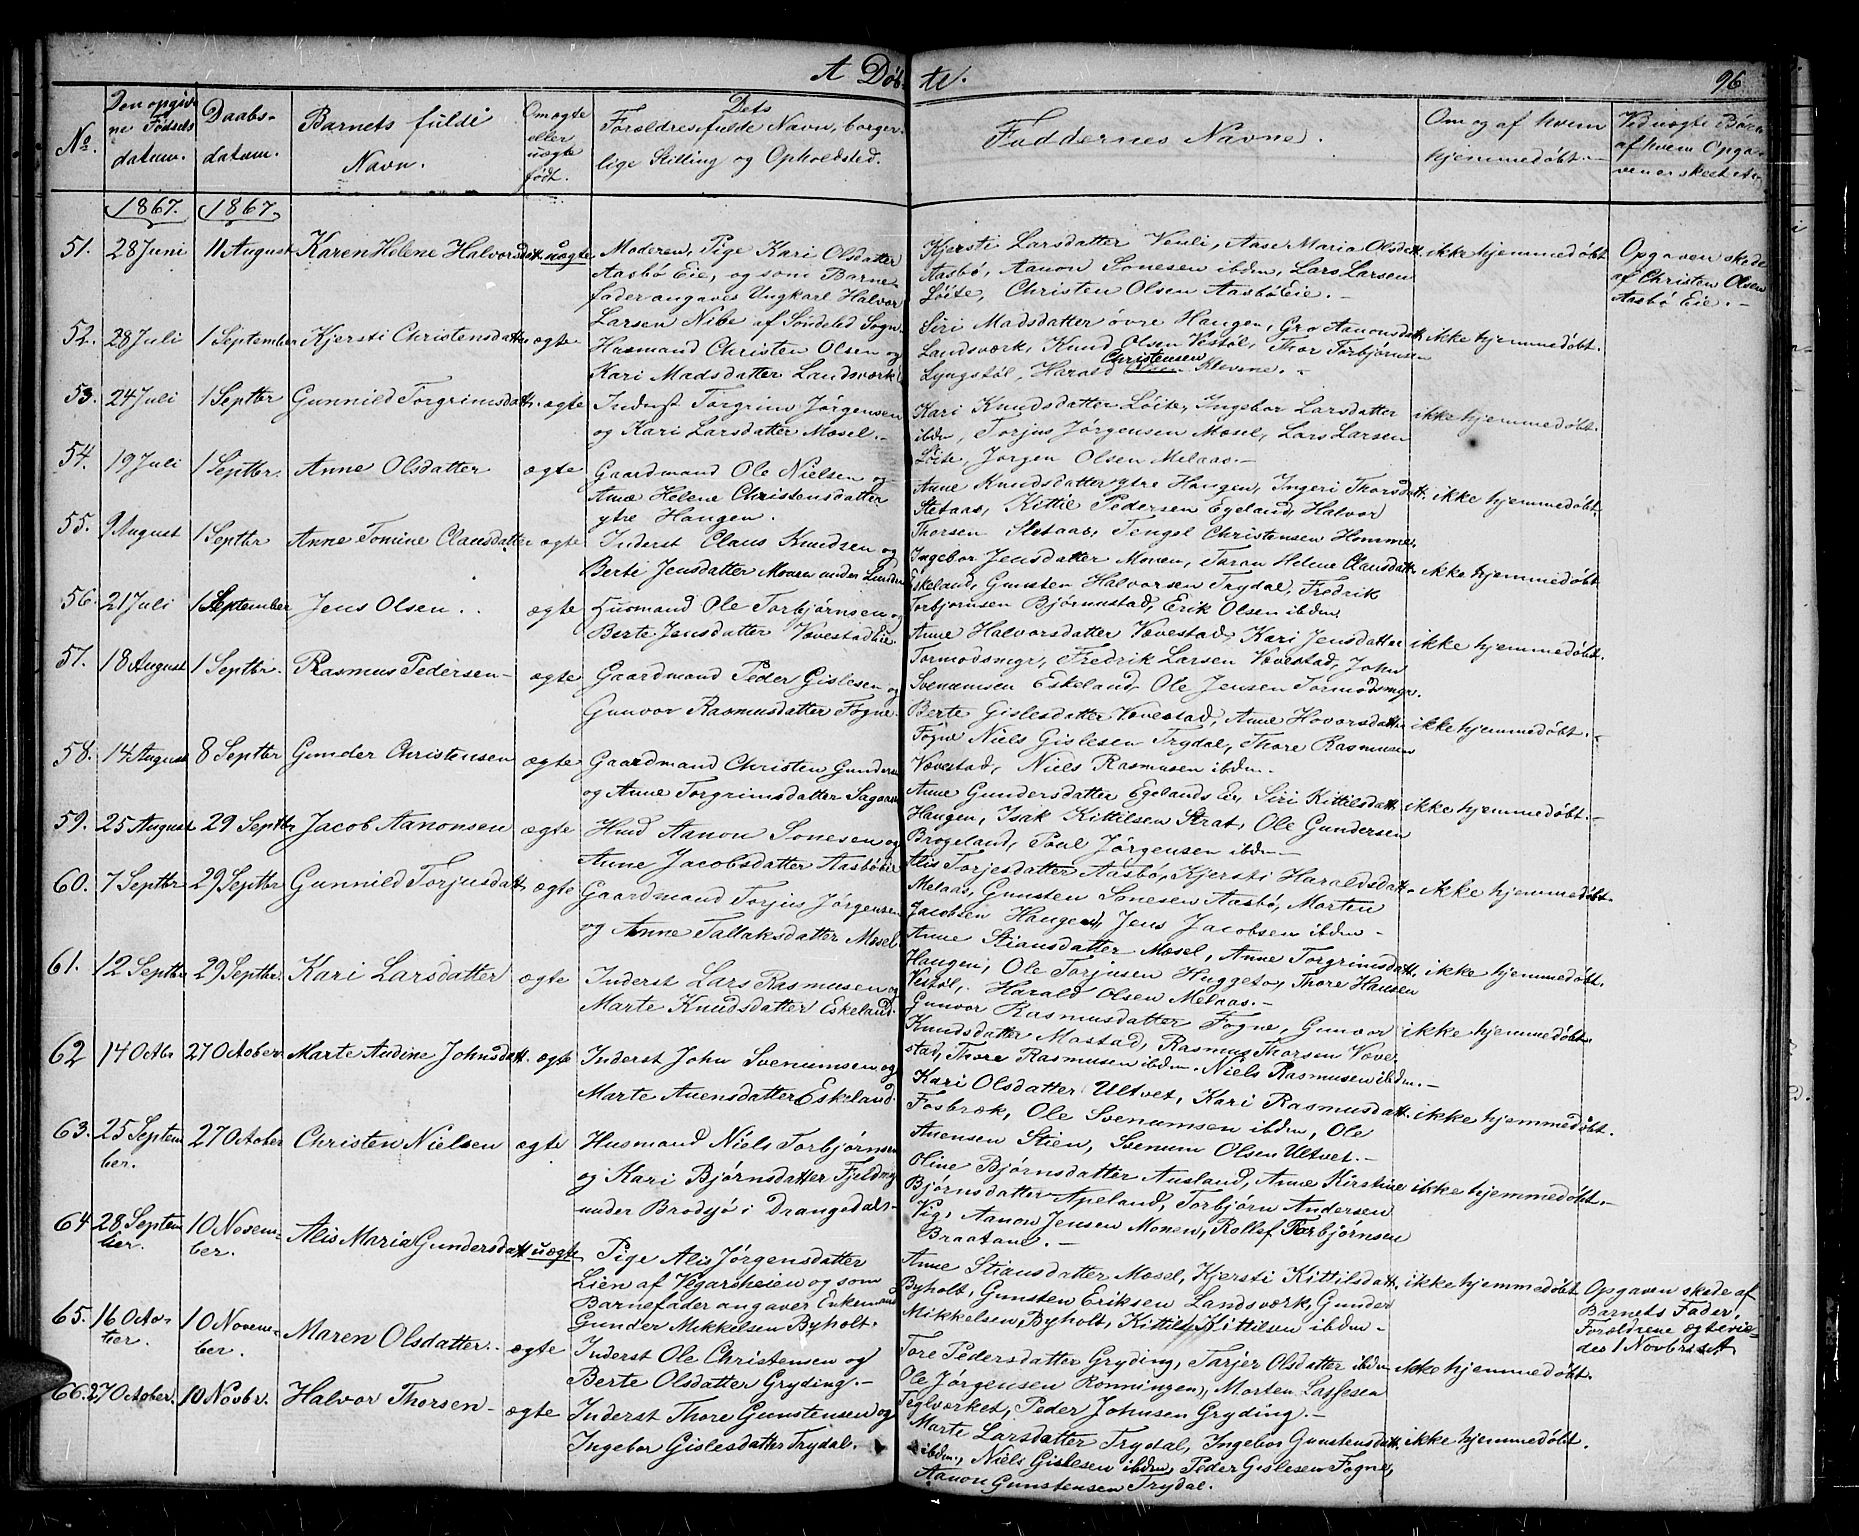 A Døb-
te.
96
No.
Den opgiv
ne Fødsels
datum.
Daabs-
datum.
Barnets fulde
Navn.
Om ægte
eller
uægte
født.
Dets
Forældres fulde Navn, borger-
lige Stilling og Opholdsted.
Faddernes Navne.
Om og af hvem
hjemmedøbt.
Ved uægte Børn
af hvem Opga-
ven er skeet
1867.
1867.
51.
28 Juni
11 August
Karen Helene Halvorsdatt.
uægte
Moderen, Pige Kari Olsdatter
Aasbø Eie, og som Barne-
fader angaves Ungkarl Halvor
Larsen Nibe af Söndeled Sogn.
Kjersti Larsdatter Veuli, Aase Maria Olsdatt.
Aasbø, Aanon Sonesen ibdm, Lars Larsen
Löite, Christen Olsen Aasbø Eie.
ikke hjemmedøbt
Opgaven skede
af Christen Olsen
Aasbø Eie.
52.
28 Juli
1 September
Kjersti Christensdatter
ægte
Husmand Christen Olsen og
Kari Madsdatter Landsværk
Siri Madsdatter övre Haugen, Gro Aanonsdatt.
Landsværk, Knud Olsen Vestøl, Thor Torbjørnsen
Lyngstøl, Harald Christensen Klevene.
ikke hjemmedøbt.
53.
24 Juli
1 Septbr
Gunnild Torgrimsdatt.
ægte
Inderst Torgrim Jörgensen
og Kari Larsdatter Mosel.
Kari Knudsdatter Löite, Ingebor Larsdatter
ibdm, Torjus Jörgensen Mosel, Lars Larsen
Löite, Jörgen Olsen Melaas.
ikke hjemmedøbt.
54.
19 Juli
1 Septbr.
Anne Olsdatter
ægte
Gaardmand Ole Nielsen og
Anne Helene Christensdatter
ytre Haugen.
Anne Knudsdatter ytre Haugen, Ingeri Thorsdatt.
Sletaas, Kittil Pedersen Egeland, Halvor
Thorsen Sletaas, Tengel Christensen Hommes.
ikke hjemmedøbt.
55.
9 August
1 Septbr
Anne Tomine Clausdatter
ægte
Inderst Claus Knudsen og
Berte Jensdatter Monen under Lunden
Ingebor Jensdatter Monen, Toran Helene Clausdatt.
Eskeland, Gunsten Halvorsen Trydal, Fredrik
Torbjornsen Bjørnestad, Erik Olsen ibdm.
ikke hjemmedøbt.
56.
21 Juli
1 September
Jens Olsen.
ægte
Husmand Ole Torbjørnsen og
Berte Jensdatter Vævestad Eie
Anne Halvorsdatter Vævestad, Kari Jensdatter
Tormodsmyr, Fredrik Larsen Vævestad, John
Svenumsen Eskeland, Ole Jensen Tormodsmyr.
ikke hjemmedøbt.
57.
18 August
1 Septbr.
Rasmus Pedersen
ægte
Gaardmand Peder Gislesen og
Gunvor Rasmusdatter Fogne.
Berte Gislesdatter Vævestad, Anne Hovorsdatter
Fogne, Niels Gislesen Trydal, Thore Rasmusen
Vævestad, Niels Rasmusen ibdm.
ikke hjemmedøbt.
58.
14 August
8 Septbr
Gunder Christensen
ægte
Gaardmand Christen Gundersen
og Anne Torgrimsdatter Sagaas
Anne Gundersdatter Egelands Eie, Siri Kittilsdatt.
Haugen, Isak Kittilsen Strat, Ole Gundersen
Brogeland, Poul Jörgensen ibdm.
ikke hjemmedøbt.
59.
25 August
29 Septbr
Jacob Aanonsen
ægte
Husmd Aanon Sonesen og
Anne Jacobsdatter Aasbø Eie
Alis Torjesdatter Aasbø, Kjersti Haraldsdatt.
Melaas, Gunsten Sonesen Aasbø, Morten
Jacobsen Haugen, Jens Jacobsen ibdm.
ikke hjemmedøbt.
60.
7 Septbr
29 Septbr
Gunnild Torjusdatt.
ægte
Gaardmand Torjus Jörgensen
og Anne Tallaksdatter Mosel.
Anne Stiansdatter Mosel, Anne Torgrimsdatt.
Haugen, Ole Torjusen Huggeto, Thore Hansen
Vestøl, Harald Olsen Melaas.
ikke hjemmedøbt.
61.
12 Septbr
29 Septbr
Kari Larsdatter
ægte
Inderst Lars Rasmusen og
Marte Knudsdatter Eskeland
Gunvor Rasmusdatter Fogne, Gunvor
Knudsdatter Mostad, Rasmus Thorsen Væve-
stad, Thore Rasmusen ibdm. Niels Rasmusen ibdm.
ikke hjemmedøbt.
62
14 Octbr
27 October
Marte Andine Johnsdatt.
ægte
Inderst John Svenumsen og
Marte Auensdatter Eskeland
Kari Olsdatter Ultvet, Kari Rasmusdatt.
Fosbræk, Ole Svenumsen ibdm, Ole
Auensen Stien, Svenum Olsen Ultvet.
ikke hjemmedøbt.
63.
25 Septem
ber.
27 October
Christen Nielsen
ægte
Husmand Niels Torbjørnsen
og Kari Bjørnsdatter Fjeldmyr
under Brodsjø i Drangedal
Oline Bjørnsdatter Ausland, Anne Kirstine
Bjørnsdatter Apeland, Torbjørn Andersen
Vig, Aanon Jensen Monen, Rollef Torbjørnsen
Braatane.
ikke hjemmedøbt.
64
28 Septem
ber.
10 Novem-
ber.
Alis Maria Gundersdatt.
uægte
Pige Alis Jørgensdatter
Lien af Vegarsheien og som
Barnefader angaver Enkemand
Gunder Mikkelsen Byholt.
Anne Stiansdatter Mosel, Kjersti Kittilsdatt.
Byholt, Gunsten Eriksen Landsværk, Gunder
Mikkelsen, Byholt, Kittil Kittilsen ibdm.
ikke hjemmedøbt.
Opgaven skede af
Barnets Fader,
Forældrene ægtevie-
des 1 Novbr
65.
16 Octo-
ber.
10 Novem-
ber.
Maren Olsdatter.
ægte
Inderst Ole Christensen og
Berte Olsdatter Gryding.
Tore Pedersdatter Gryding, Tarjer Olsdatter ibdm
Ole Jörgensen Rönningen, Morten Lassesen
Teglværket, Peder Johnsen Gryding.
ikke hjemmedøbt.
66.
27 October.
10 Novbr.
Halvor Thorsen
ægte
Inderst Thore Gunstensen og
Ingebor Gislesdatter Trydal.
Marte Larsdatter Trydal, Ingebor Gunstensdatt.
ibdm., Niels Gislesen ibdm, Peder Gislesen Fogne,
Aanon Gunstensen Trydal.
ikke hjemmedøbt.